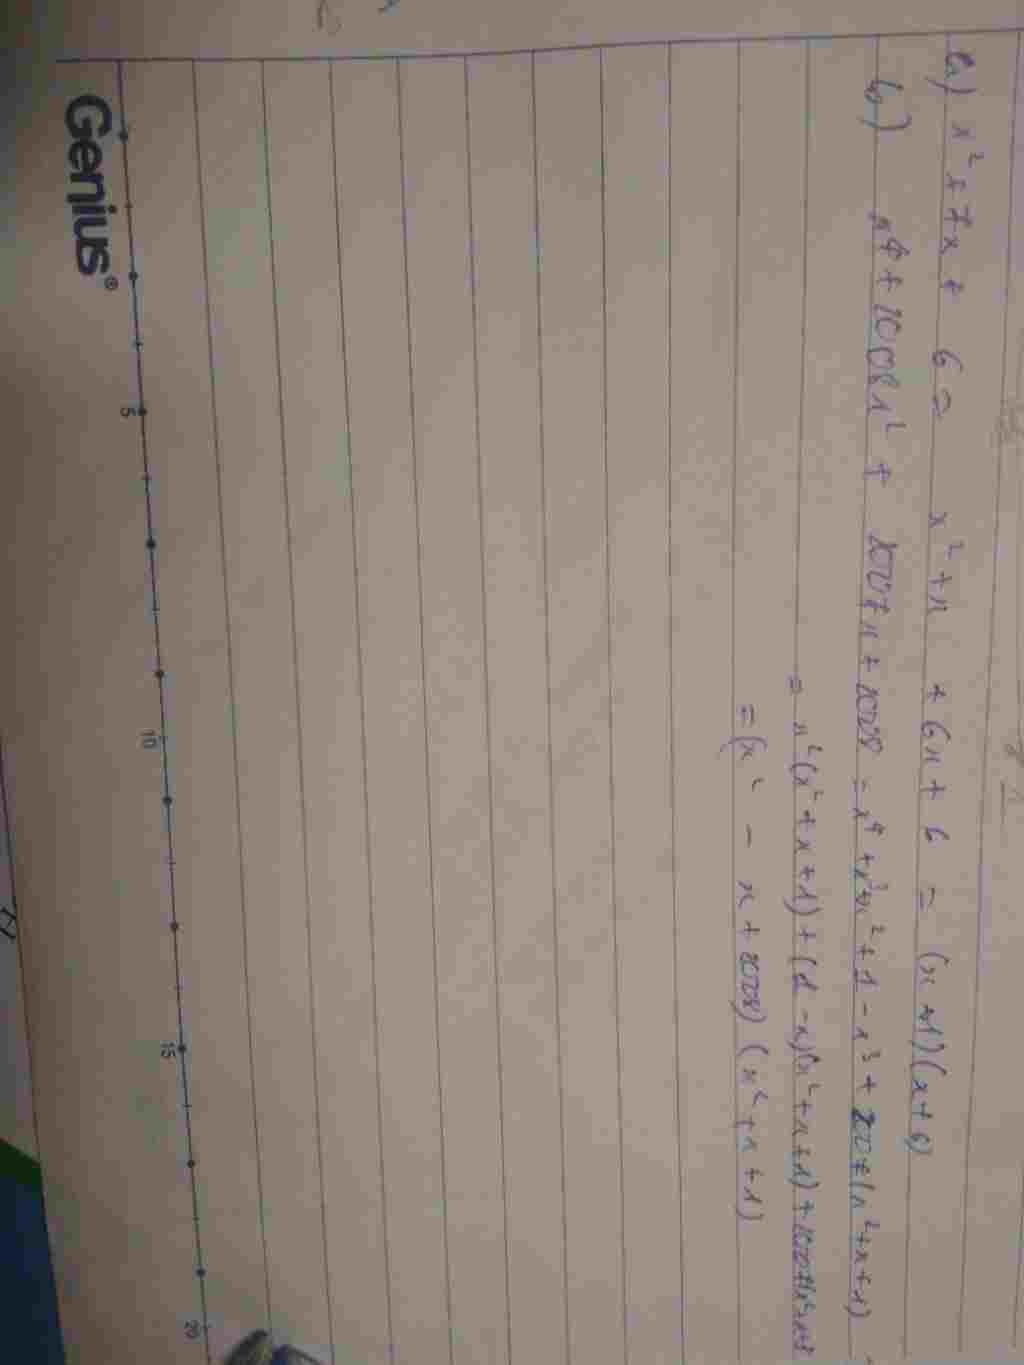 a) x² + 7x + 6 = x² + x + 6x + 6 = (x + 1)(x + 6)
b) x⁴ + 2008x² + 2007x + 2008 = x⁴ + x³ + x² + 1 - x³ + 2007(x² + x + 1)
= x² (x² + x + 1) + (1 - x)(x² + x + 1) + 2007(x² + x + 1)
= (x² - x + 2008) (x² + x + 1)
5 10 15 20
Genius®